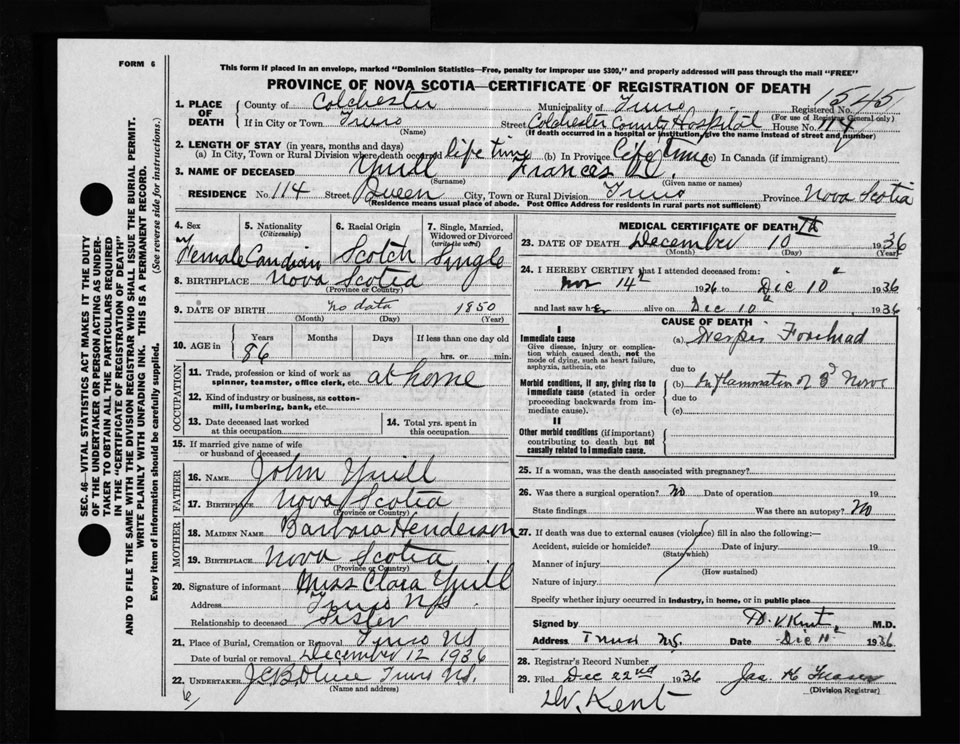 FORM 6
This form if placed in an envelope, marked "Dominion Statistics—Free, penalty for improper use $300," and properly addressed will pass through the mail "FREE"
PROVINCE OF NOVA SCOTIA—CERTIFICATE OF REGISTRATION OF DEATH
1. PLACE OF DEATH County of Colchester Municipality of Truro Registered No. 1545
(For use of Registrar General only)
If in City or Town Truro Street Colchester County Hospital House No. 114
(Name) (If death occurred in a hospital or institution, give the name instead of street and number)
2. LENGTH OF STAY (in years, months and days)
(a) In City, Town or Rural Division where death occurred life time (b) In Province life time (c) In Canada (if immigrant)
3. NAME OF DECEASED Yuill Frances
(Surname) (Given name or names)
RESIDENCE No. 114 Street Queen City, Town or Rural Division Truro Province Nova Scotia
(Residence means usual place of abode. Post Office Address for residents in rural parts not sufficient)
4. Sex Female
5. Nationality (Citizenship) Canadian
6. Racial Origin Scotch
7. Single, Married, Widowed or Divorced (write the word) Single
8. BIRTHPLACE Nova Scotia
(Province or Country)
9. DATE OF BIRTH no data 1850
(Month) (Day) (Year)
10. AGE in Years 86 Months Days If less than one day old
hrs. or min.
OCCUPATION
11. Trade, profession or kind of work as spinner, teamster, office clerk, etc. at home
12. Kind of industry or business, as cotton-mill, lumbering, bank, etc.
13. Date deceased last worked at this occupation
14. Total yrs. spent in this occupation
15. If married give name of wife or husband of deceased
FATHER
16. NAME John Yuill
17. BIRTHPLACE Nova Scotia
(Province or Country)
MOTHER
18. MAIDEN NAME Barbara Henderson
19. BIRTHPLACE Nova Scotia
(Province or Country)
20. Signature of informant Miss Clara Yuill
Address Truro NS
Relationship to deceased Sister
21. Place of Burial, Cremation or Removal Truro NS
Date of burial or removal December 12 1936
22. UNDERTAKER Truro NS.
(Name and address)
MEDICAL CERTIFICATE OF DEATH
23. DATE OF DEATH December 10 Th 1936
(Month) (Day) (Year)
24. I HEREBY CERTIFY that I attended deceased from:
Nov 14th 1936 to Dec 10th 1936
and last saw her alive on Dec 10th 1936
CAUSE OF DEATH
I
Immediate cause
Give disease, injury or complication which caused death, not the mode of dying, such as heart failure, asphyxia, asthenia, etc
(a) Herpes Forehead
due to
Morbid conditions, if any, giving rise to immediate cause (stated in order proceeding backwards from immediate cause).
(b) Inflammation of Nerve
due to
(c)
II
Other morbid conditions (if important) contributing to death but not causally related to immediate cause.
25. If a woman, was the death associated with pregnancy?
26. Was there a surgical operation? No Date of operation 19
State findings Was there an autopsy? No
27. If death was due to external causes (violence) fill in also the following:—
Accident, suicide or homicide? Date of injury 19
(State which)
Manner of injury
(How sustained)
Nature of injury
Specify whether injury occurred in industry, in home, or in public place
Signed by Kent M.D.
Address Truro NS. Date Dec 10th 1936
28. Registrar's Record Number
29. Filed Dec 22nd 1936 Jas. Fraser
(Division Registrar)
Dr. Kent
SEC. 46—VITAL STATISTICS ACT MAKES IT THE DUTY
OF THE UNDERTAKER OR PERSON ACTING AS UNDER-
TAKER TO OBTAIN ALL THE PARTICULARS REQUIRED
IN THE "CERTIFICATE OF REGISTRATION OF DEATH"
AND TO FILE THE SAME WITH THE DIVISION REGISTRAR WHO SHALL ISSUE THE BURIAL PERMIT.
WRITE PLAINLY WITH UNFADING INK. THIS IS A PERMANENT RECORD.
Every item of information should be carefully supplied. (See reverse side for instructions.)